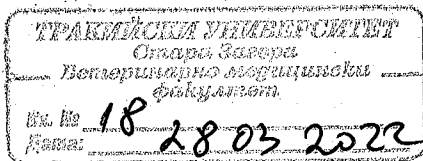 ТРАКИЙСКИ УНИВЕРСИТЕТ
Стара Загора
Ветеринарно медицински
факултет
Вх. № 18
Дата: 28 03 2022